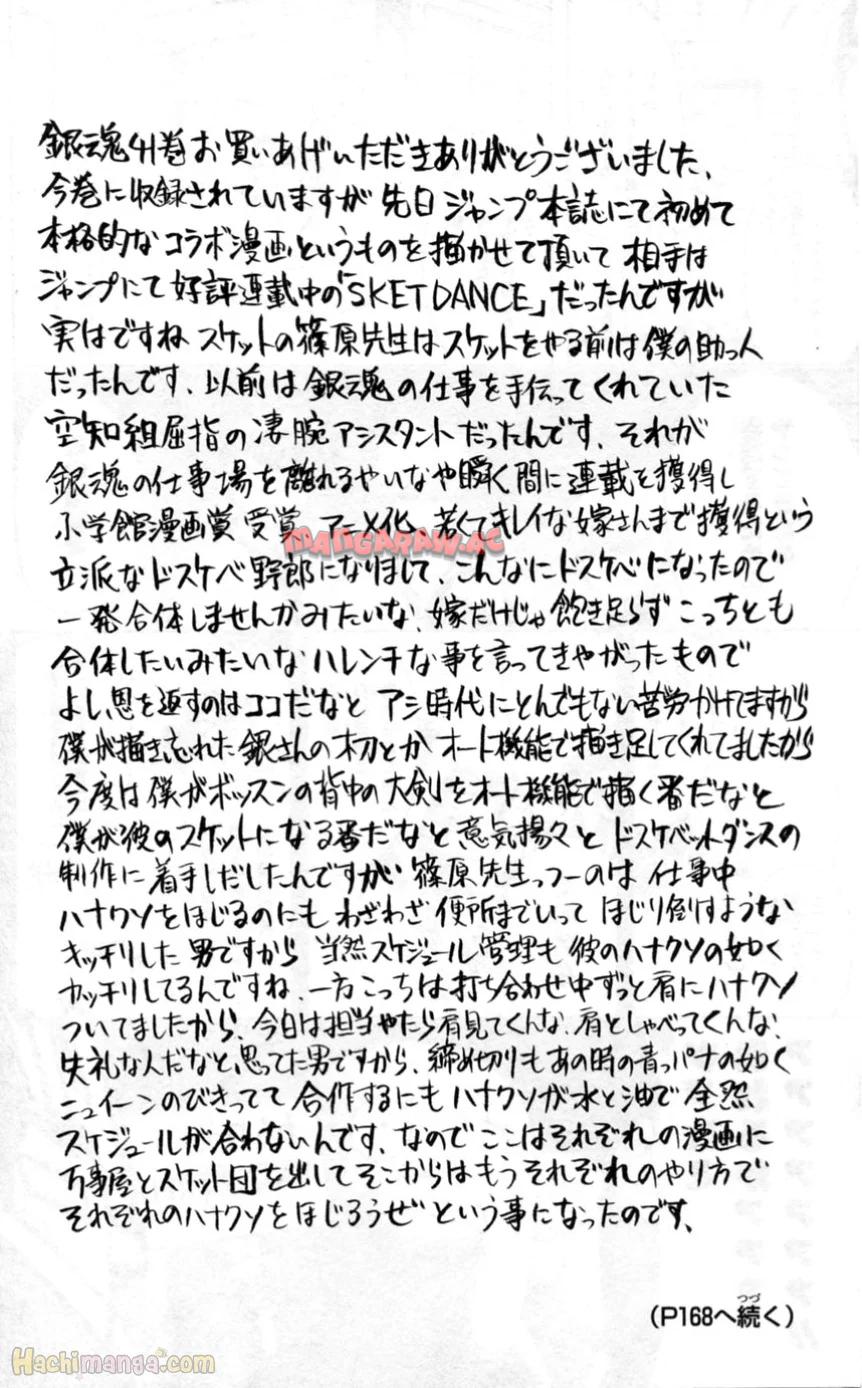 銀魂41巻お買いあげいただきありがとうございました、
今巻に収録されていますが先日ジャンプ本誌にて初めて
本格的なコラボ漫画というものを描かせて頂いて相手は
ジャンプにて好評連載中の「SKET DANCE」だったんですが
実はですねスケットの篠原先生はスケットをやる前は僕の助っ人
だったんです、以前は銀魂の仕事を手伝ってくれていた
空知組屈指の凄腕アシスタントだったんです、それが
銀魂の仕事場を離れるやいなや瞬く間に連載を獲得し
小学館漫画賞受賞 アニメ化、若くてキレイな嫁さんまで獲得という
MANGARAW.AC
立派なドスケベ野郎になりまして、こんなにドスケベになったので
一発合体しませんかみたいな、嫁だけじゃ飽き足らずこっちとも
合体したいみたいなハレンチな事を言ってきやがったもので
よし、恩を返すのはココだなと アシ時代にとんでもない苦労かけてますから
僕が描き忘れた銀さんの木刀とかオート機能で描き足してくれてましたから
今度は僕がボッスンの背中の大剣をオート機能で描く番だなと
僕が彼のスケットになる番だなと意気揚々とドスケベットダンスの
制作に着手しだしたんですが 篠原先生っつーのは仕事中
ハナクソをほじるのにもわざわざ便所までいってほじり倒すような
キッチリした男ですから当然スケジュール管理も彼のハナクソの如く
カッチリしてるんですね、一方こっちは打ち合わせ中ずっと肩にハナクソ
ついてましたから、今日は担当やたら肩見てくんな、肩としゃべってくんな、
失礼な人だなと思ってた男ですから、締め切りもあの時の青っパナの如く
ニュイーンのびきってて合作するにもハナクソが水と油で全然
スケジュールが合わないんです、なのでここはそれぞれの漫画に
万事屋とスケット団を出してそこからはもうそれぞれのやり方で
それぞれのハナクソをほじろうぜという事になったのです、
(P168へ続く)
Hachimanga.com